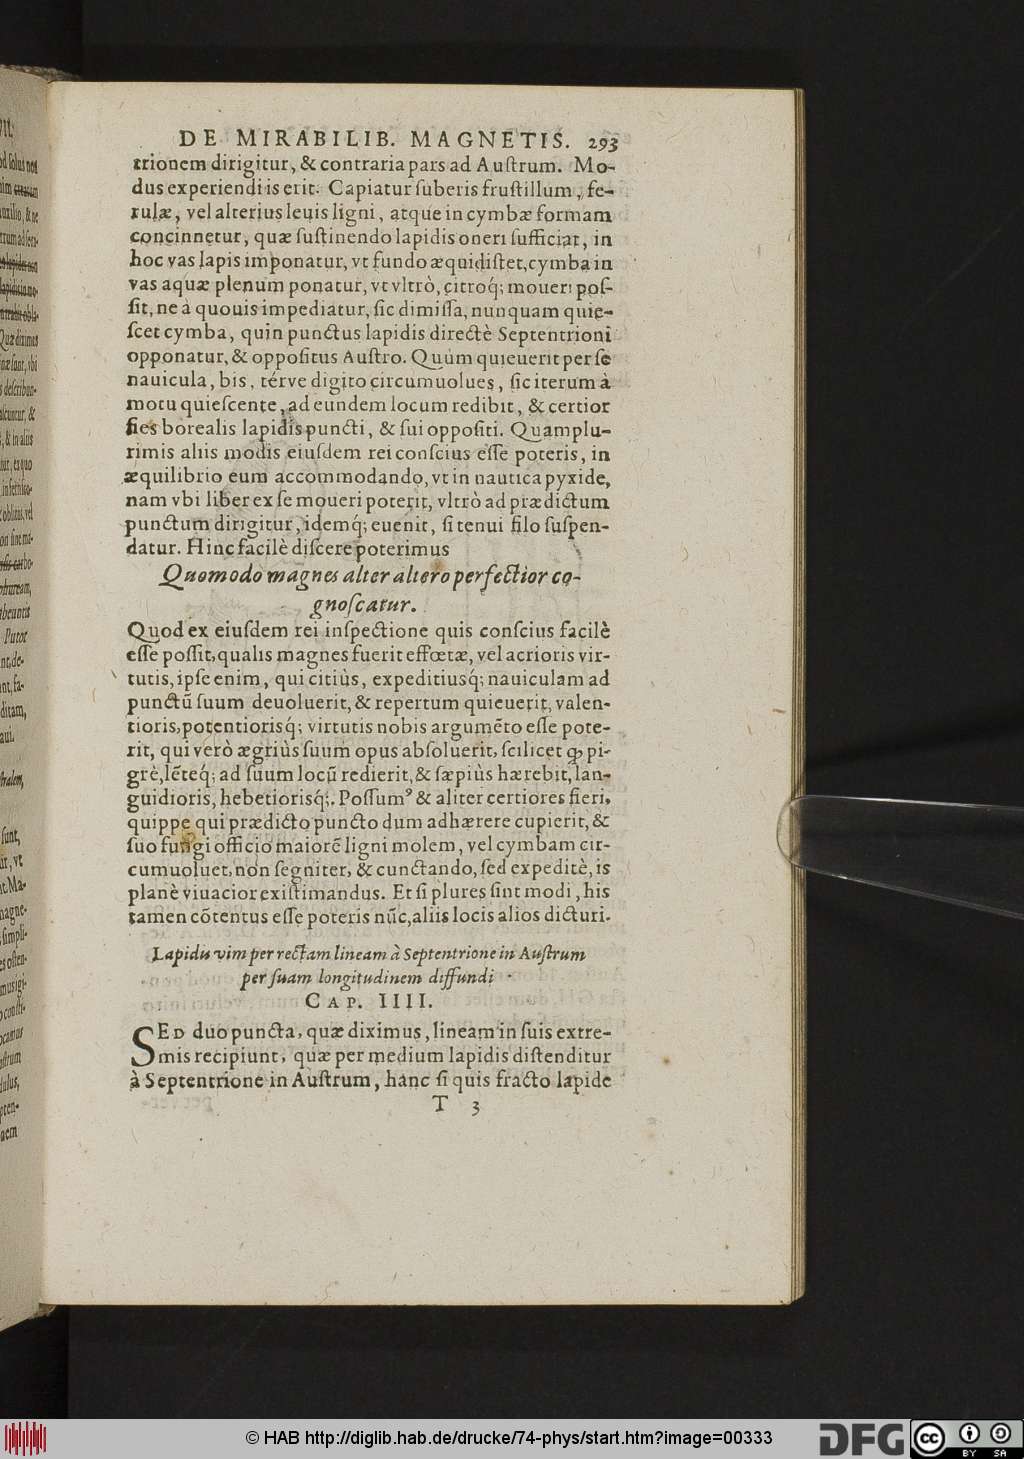 DE MIRABILIB. MAGNETIS. 293
trionem dirigitur, & contraria pars ad Auſtrum. Mo-
dus experiendi is erit. Capiatur ſuberis fruſtillum, fe-
rulæ, vel alterius leuis ligni, atque in cymbæ formam
concinnetur, quæ ſuſtinendo lapidis oneri ſufficiat, in
hoc vas lapis imponatur, vt fundo æquidiſtet, cymba in
vas aquæ plenum ponatur, vt vltrò, citroq́; moueri poſ-
ſit, ne à quouis impediatur, ſic dimiſſa, nunquam quie-
ſcet cymba, quin punctus lapidis directè Septentrioni
opponatur, & oppoſitus Auſtro. Quùm quieuerit per ſe
nauicula, bis, térve digito circumuolues, ſic iterum à
motu quieſcente, ad eundem locum redibit, & certior
fies borealis lapidis puncti, & ſui oppoſiti. Quamplu-
rimis aliis modis eiuſdem rei conſcius eſſe poteris, in
æquilibrio eum accommodando, vt in nautica pyxide,
nam vbi liber ex ſe moueri poterit, vltrò ad prædictum
punctum dirigitur, idemq́; euenit, ſi tenui filo ſuſpen-
datur. Hinc facilè diſcere poterimus
Quomodo magnes alter altero perfectior co-
gnoſcatur.
Quod ex eiuſdem rei inſpectione quis conſcius facilè
eſſe poſſit, qualis magnes fuerit effœtæ, vel acrioris vir-
tutis, ipſe enim, qui citiùs, expeditiusq́; nauiculam ad
punctū ſuum deuoluerit, & repertum quieuerit, valen-
tioris, potentiorisq́; virtutis nobis argumēto eſſe pote-
rit, qui verò ægriùs ſuum opus abſoluerit, ſcilicet ꝙ pi-
grè, lēteq́; ad ſuum locū redierit, & ſæpiùs hærebit, lan-
guidioris, hebetiorisq́;. Poſſumꝰ & aliter certiores fieri,
quippe qui prædicto puncto dum adhærere cupierit, &
ſuo fungi officio maiorē ligni molem, vel cymbam cir-
cumuoluet, non ſegniter, & cunctando, ſed expeditè, is
planè viuacior exiſtimandus. Et ſi plures ſint modi, his
tamen cōtentus eſſe poteris nūc, aliis locis alios dicturi.
Lapidis vim per rectam lineam à Septentrione in Auſtrum
per ſuam longitudinem diffundi
CAP. IIII.
SED duo puncta, quæ diximus, lineam in ſuis extre-
mis recipiunt, quæ per medium lapidis diſtenditur
à Septentrione in Auſtrum, hanc ſi quis fracto lapide
T 3
© HAB http://diglib.hab.de/drucke/74-phys/start.htm?image=00333
DFG
cc BY SA